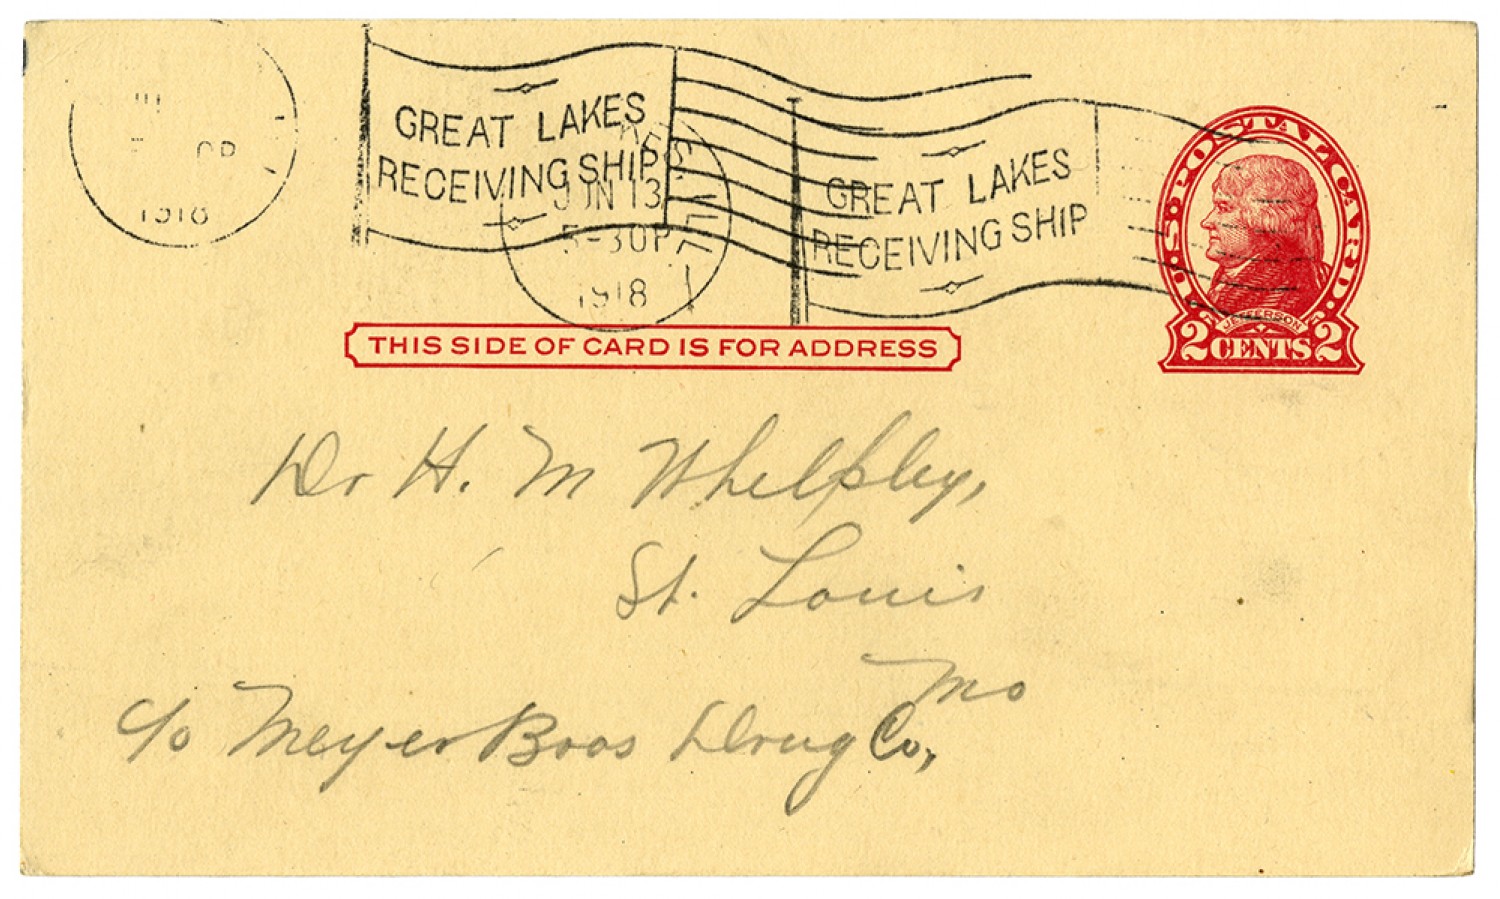 1918
GREAT LAKES
RECEIVING SHIP
JUN 13
5-30P
1918
GREAT LAKES
RECEIVING SHIP
U.S. POSTAL CARD
JEFFERSON
2 CENTS 2
THIS SIDE OF CARD IS FOR ADDRESS
Dr H. M Whelpley,
St. Louis
Mo
c/o Meyer Bros Drug Co.,